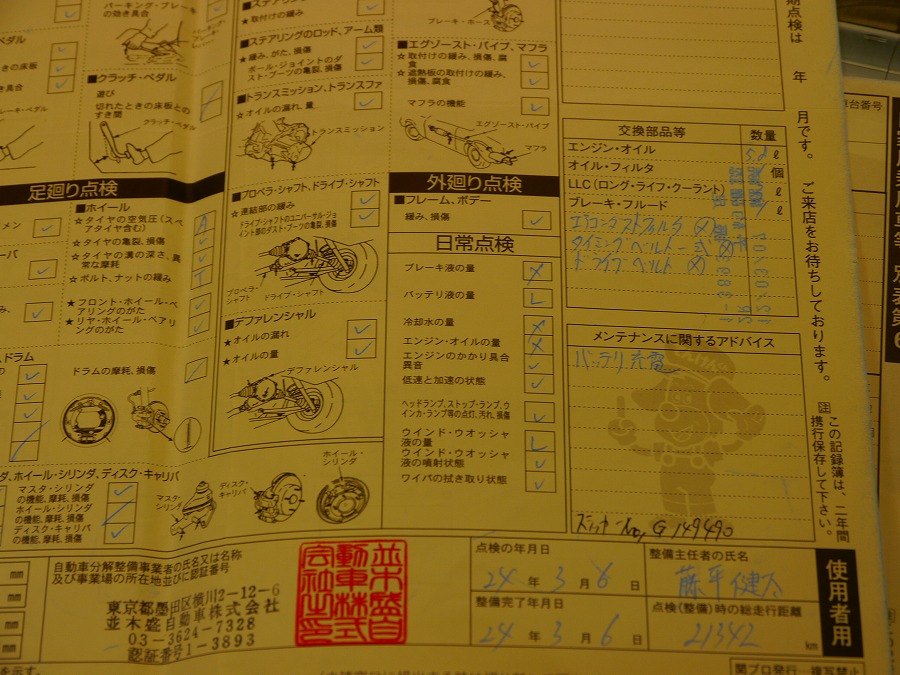 パーキング・ブレーキ
の効き具合
■クラッチ・ペダル
遊び
切れたときの床板との
すき間
クラッチ・ペダル
足廻り点検
■ホイール
☆タイヤの空気圧(スペ
アタイヤ含む)
☆タイヤの亀裂、損傷
☆タイヤの溝の深さ、異
常な摩耗
☆ボルト、ナットの緩み
★フロント・ホイール・ベ
アリングのがた
★リヤ・ホイール・ベアリ
ングのがた
ドラムの摩耗、損傷
ダ、ホイール・シリンダ、ディスク・キャリパ
マスタ・シリンダ
の機能、摩耗、損傷
ホイール・シリンダ
の機能、摩耗、損傷
ディスク・キャリパ
の機能、摩耗、損傷
マスタ・
シリンダ
ディスク・
キャリパ
ホイール・
シリンダ
☆取付けの緩み
■ステアリングのロッド、アーム類
☆緩み、がた、損傷
ボール・ジョイントのダ
スト・ブーツの亀裂、損傷
■トランスミッション、トランスファ
☆オイルの漏れ、量
トランスミッション
■プロペラ・シャフト、ドライブ・シャフト
☆連結部の緩み
ドライブ・シャフトのユニバーサル・ジョ
イント部のダスト・ブーツの亀裂、損傷
プロペラ・
シャフト
ドライブ・シャフト
■デファレンシャル
★オイルの漏れ
★オイルの量
デファレンシャル
ブレーキ・ホース
■エグゾースト・パイプ、マフラ
☆取付けの緩み、損傷、腐
食
☆遮熱板の取付けの緩み、
損傷、腐食
マフラの機能
エグゾースト・パイプ
マフラ
外廻り点検
■フレーム、ボデー
緩み、損傷
日常点検
ブレーキ液の量
バッテリ液の量
冷却水の量
エンジン・オイルの量
エンジンのかかり具合
異音
低速と加速の状態
ヘッドランプ、ストップ・ランプ、ウ
インカ・ランプ等の点灯、汚れ、損傷
ウインド・ウオッシャ
液の量
ウインド・ウオッシャ
液の噴射状態
ワイパの拭き取り状態
期点検は 年 月です。 ご来店をお待ちしております。
交換部品等 数量
エンジン・オイル ℓ
オイル・フィルタ 個
LLC(ロング・ライフ・クーラント) ℓ
ブレーキ・フルード ℓ
タイミングベルト
ドライブベルト
メンテナンスに関するアドバイス
バッテリ充電
No, G 149490
注 この記録簿は、二年間
携行保存して下さい。
自動車分解整備事業者の氏名又は名称
及び事業場の所在地並びに認証番号
東京都墨田区横川2-12-6
並木盛自動車株式会社
03-3624-7328
認証番号1-3893
並木盛自
動車株式
会社之印
点検の年月日
24 年 3 月 6 日
整備完了年月日
24 年 3 月 6 日
整備主任者の氏名
藤平健太
点検(整備)時の総走行距離
21342 km
使用者用
mm
mm
mm
を示す。
関ブロ発行…複写禁止
車台番号